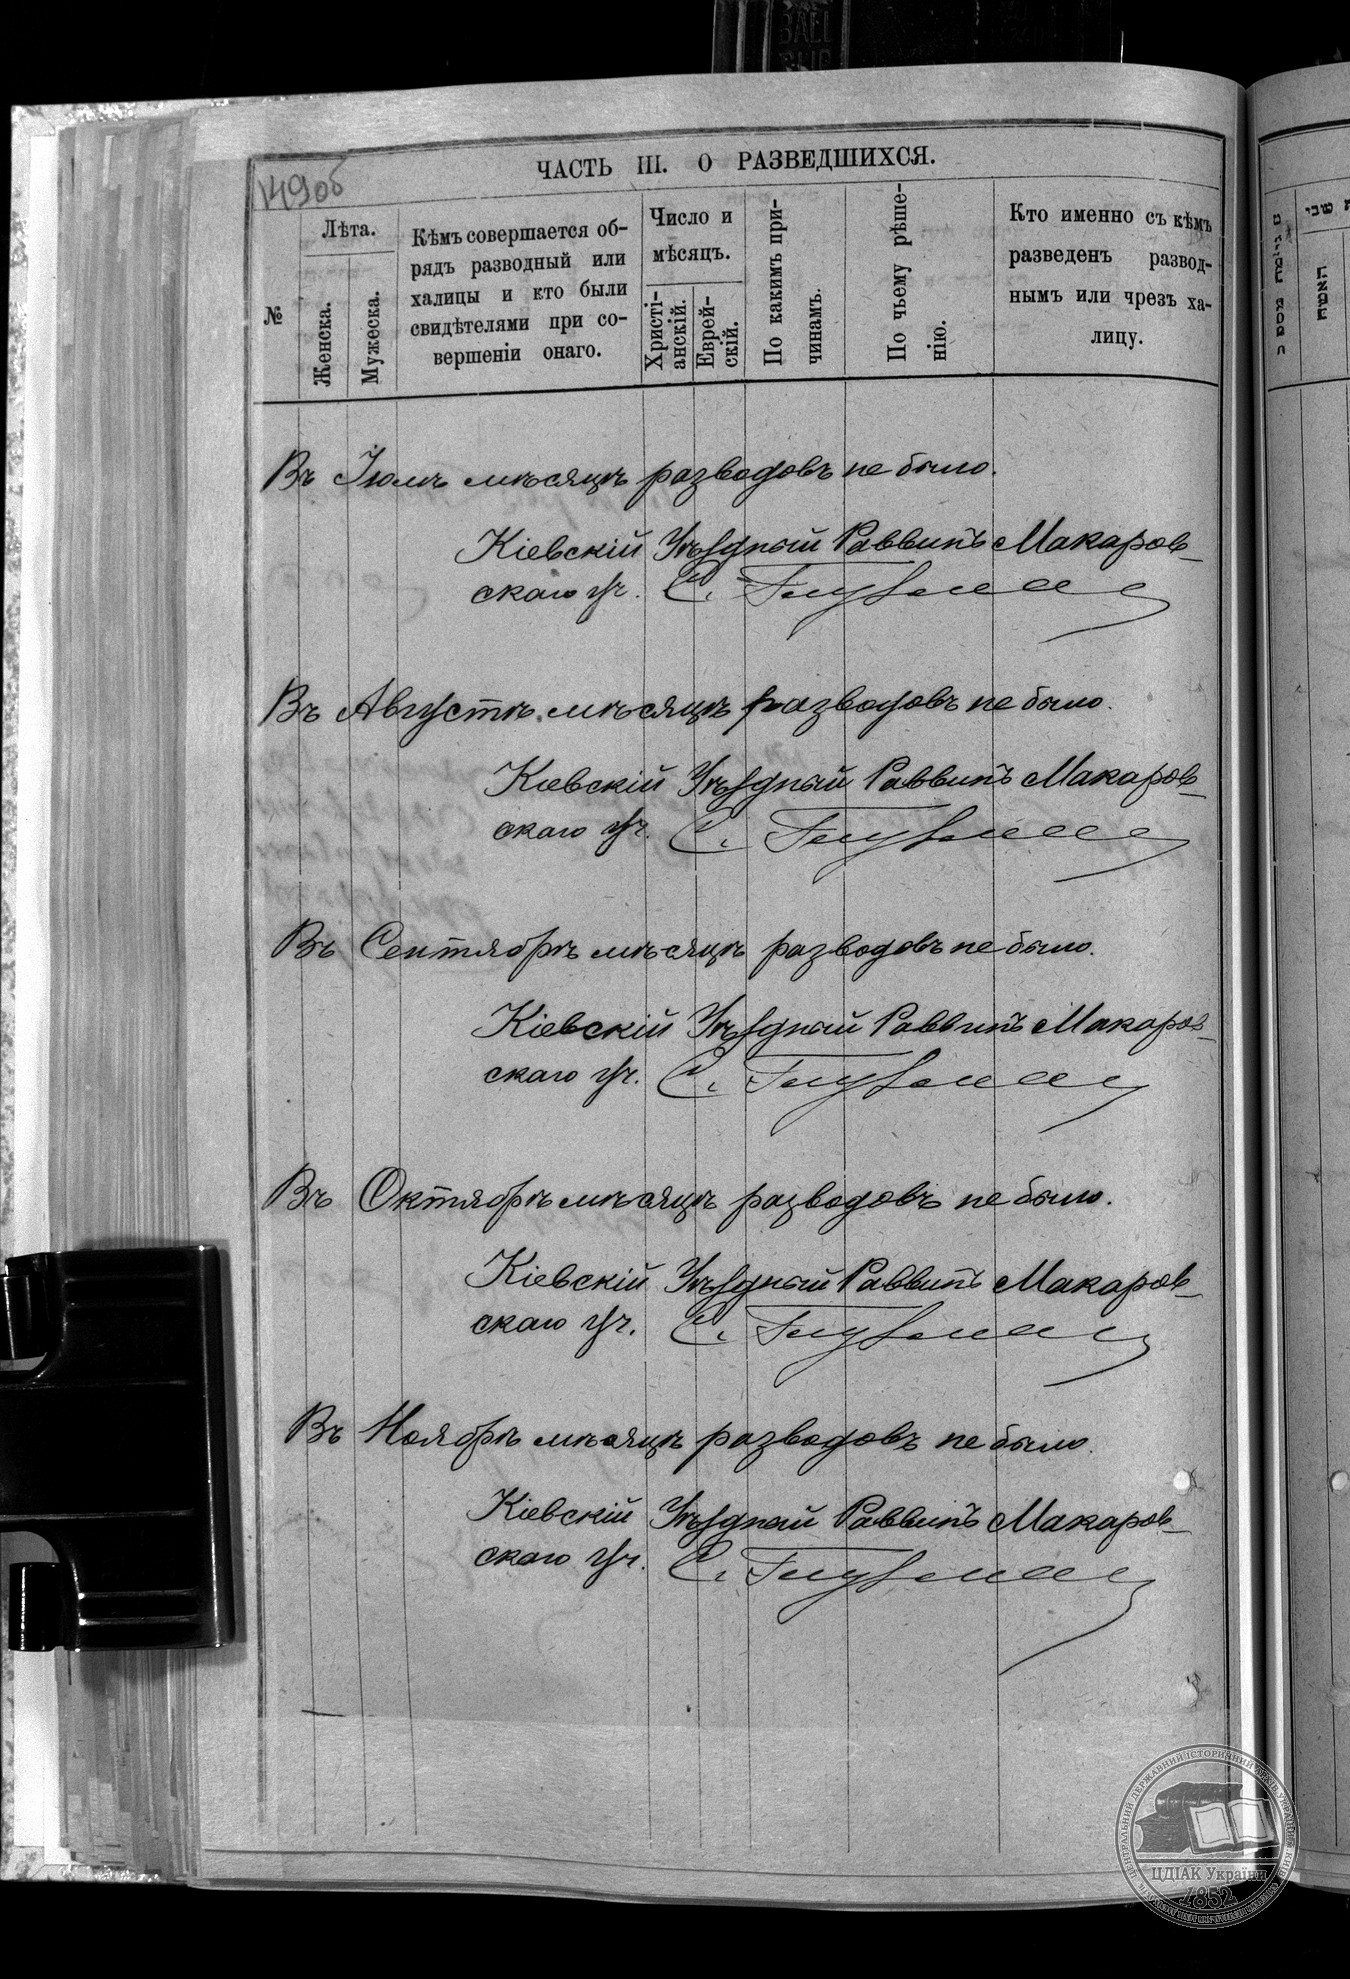 149об
ЧАСТЬ III. О РАЗВЕДШИХСЯ.
№
Лѣта.
Женска.
Мужеска.
Кѣмъ совершается об-
рядъ разводный или
халицы и кто были
свидѣтелями при со-
вершеніи онаго.
Число и
мѣсяцъ.
Христі-
анскій.
Еврей-
скій.
По какимъ при-
чинамъ.
По чьему рѣше-
нію.
Кто именно съ кѣмъ
разведенъ развод-
нымъ или чрезъ ха-
лицу.
Въ Іюлѣ мѣсяцѣ разводовъ не было.
Кіевскій Уѣздный Раввинъ Макаров-
скаго уч. С.
Въ Августѣ мѣсяцѣ разводовъ не было.
Кіевскій Уѣздный Раввинъ Макаров-
скаго уч. С.
Въ Сентябрѣ мѣсяцѣ разводовъ не было.
Кіевскій Уѣздный Раввинъ Макаров-
скаго уч. С.
Въ Октябрѣ мѣсяцѣ разводовъ не было.
Кіевскій Уѣздный Раввинъ Макаров-
скаго уч. С.
Въ Ноябрѣ мѣсяцѣ разводовъ не было.
Кіевскій Уѣздный Раввинъ Макаров-
скаго уч. С.
האשה
ЦЕНТРАЛЬНИЙ ДЕРЖАВНИЙ ІСТОРИЧНИЙ АРХІВ УКРАЇНИ
ЦДІАК України
1852